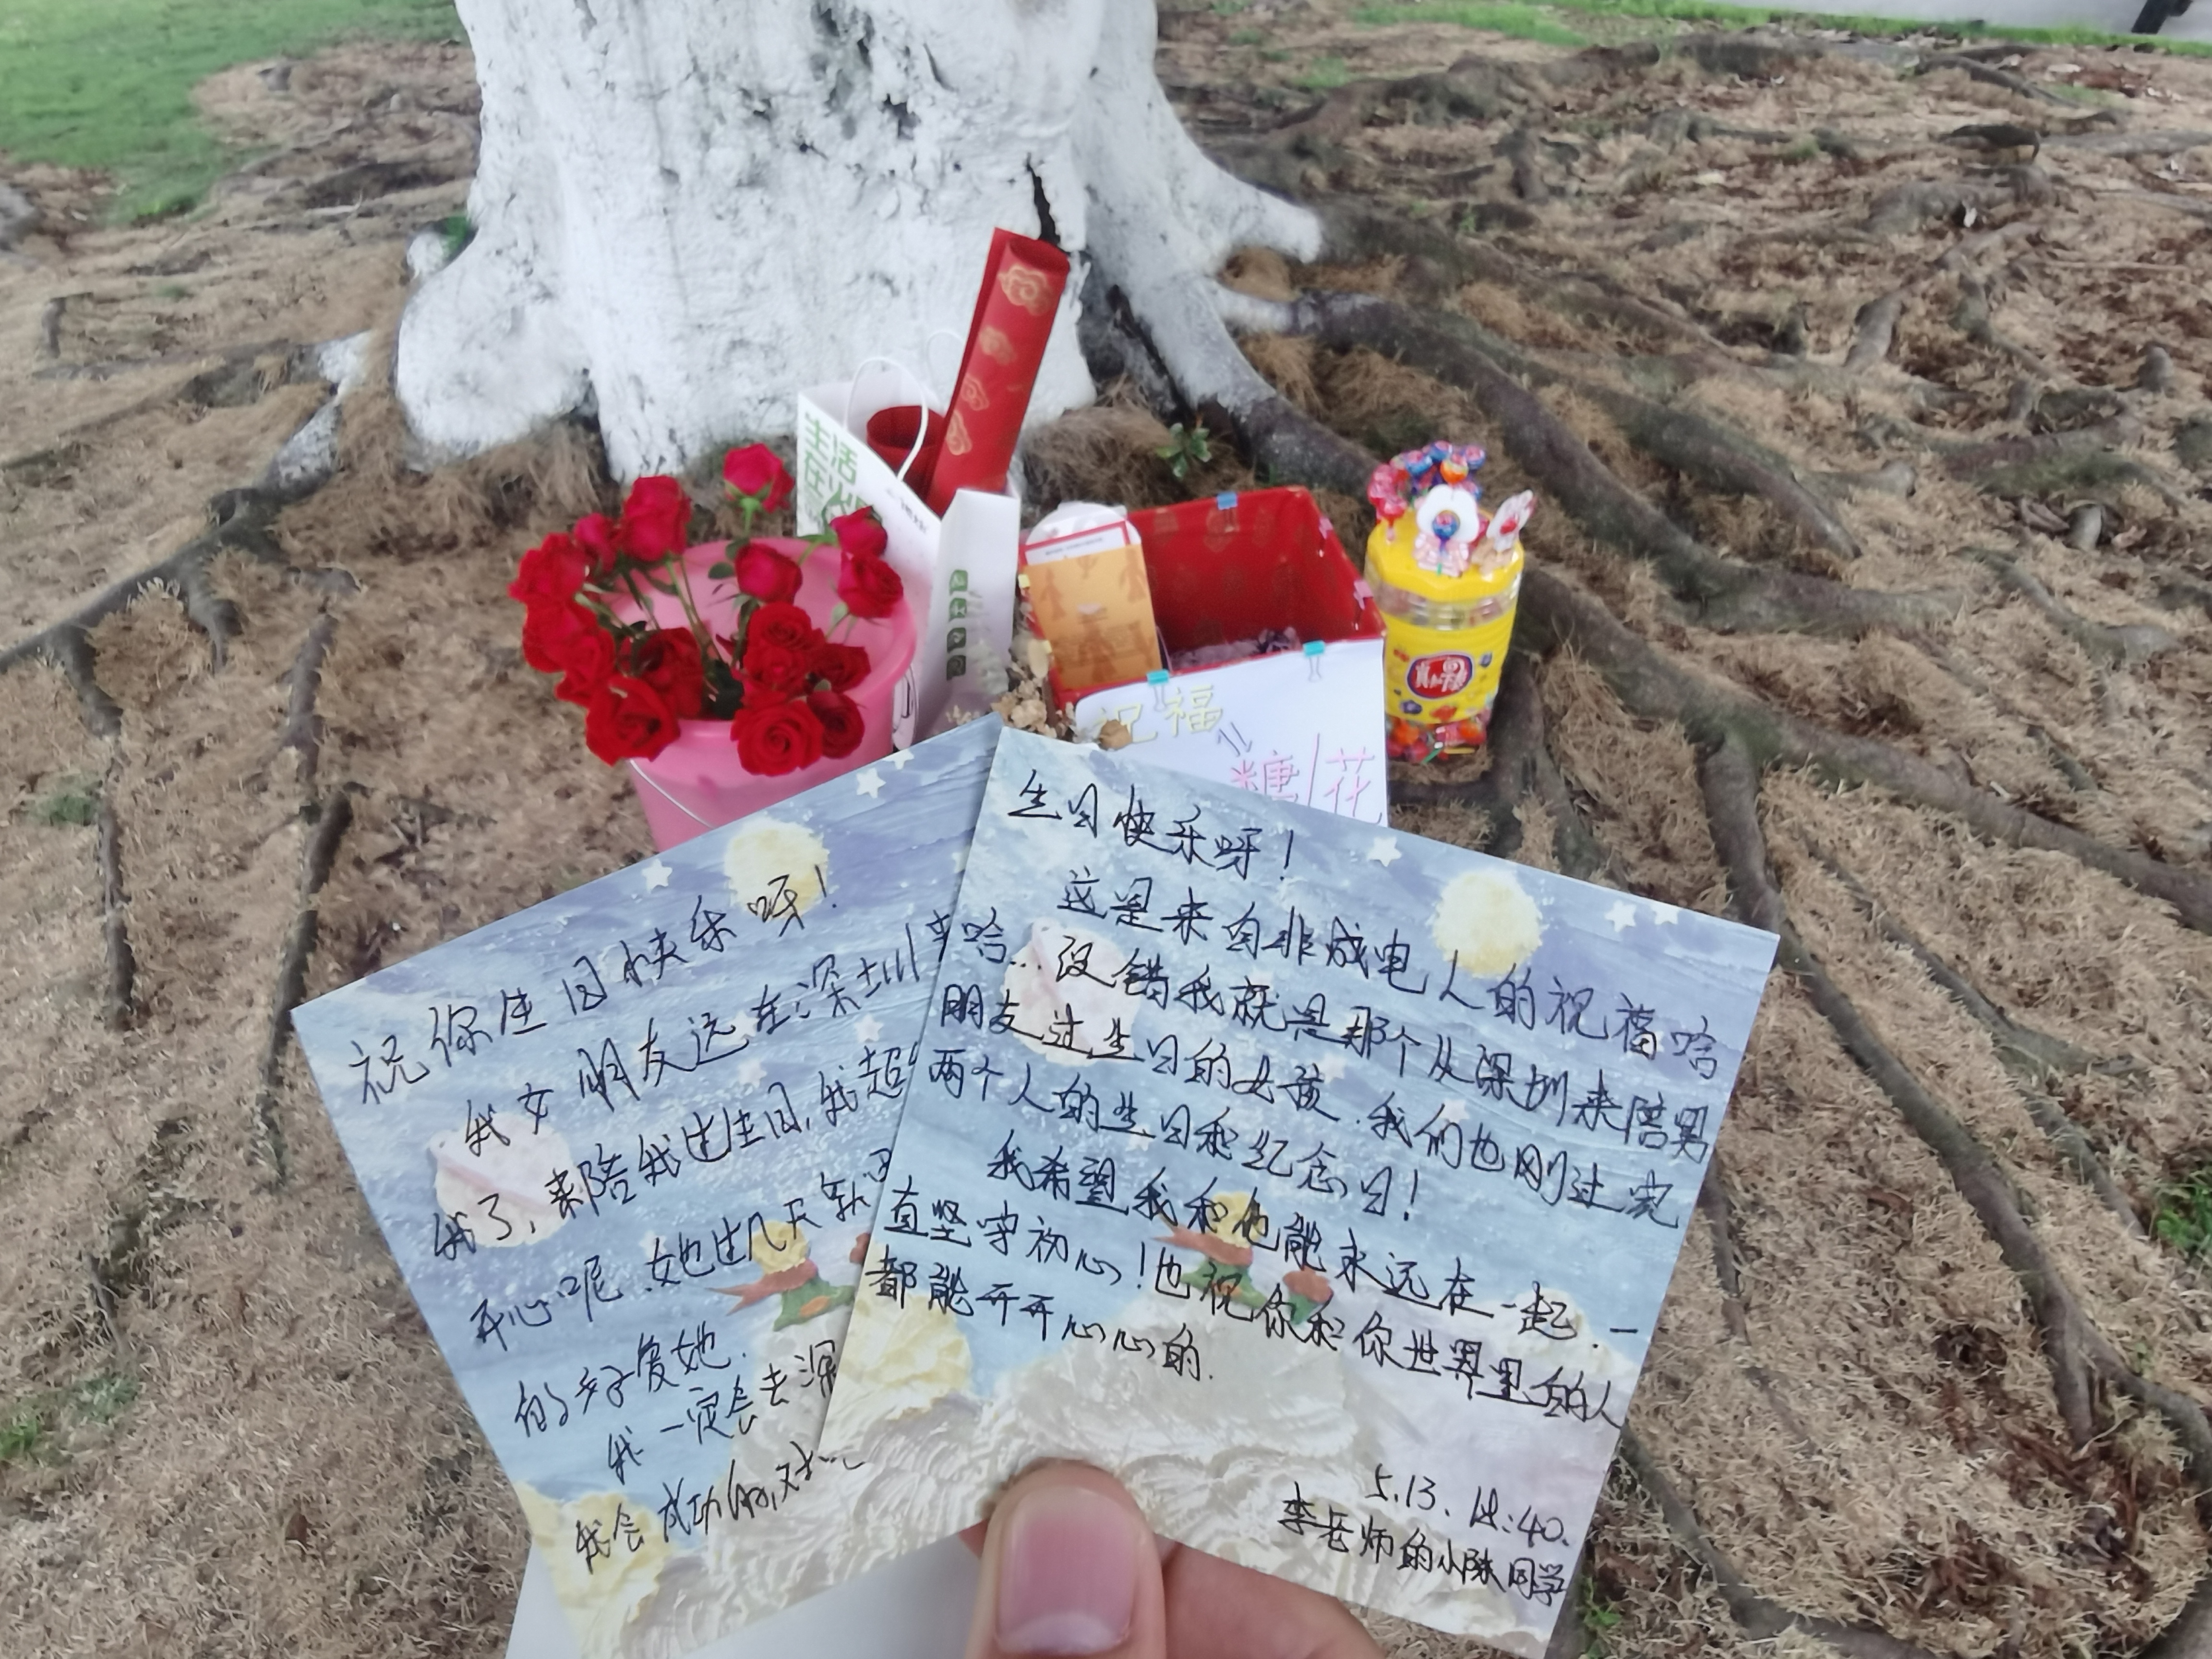 生活
在
祝福
糖/花
真知棒
祝你生日快乐呀！
我女朋友远在深圳
我了，来陪我过生日，我超
开心呢．她过几天就回
的好好爱她．
我一定会去深
我会成功的，对吧
生日快乐呀！
这是来自非成电人的祝福哈
哈...没错我就是那个从深圳来陪男
朋友过生日的女孩．我们也刚过完
两个人的生日和纪念日！
我希望我和他能永远在一起．一
直坚守初心！也祝你和你世界里的人
都能开开心心的．
5.13. 18:40.
李老师的小陈同学